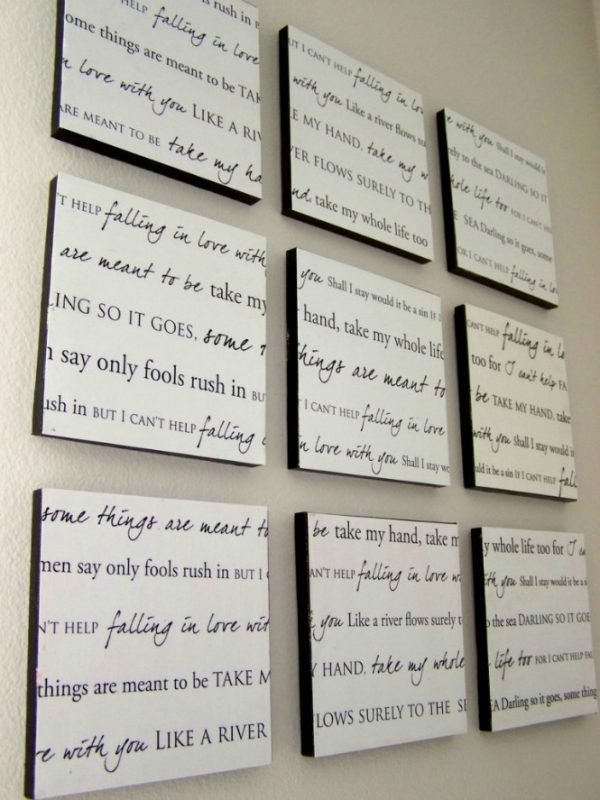 rush in B
HELP falling in love
ome things are meant to be TAK
n love with you LIKE A RIV
ARE MEANT TO BE take my ha
UT I CAN'T HELP falling in lov
with you Like a river flows su
E MY HAND, take my w
VER FLOWS SURELY TO TH
nd, take my whole life too
e with you Shall I stay would it
rely to the sea DARLING SO IT
hole life too FOR I CAN'T HELP
E SEA Darling so it goes, some
OR I CAN'T HELP falling in lov
'T HELP falling in love with
are meant to be take my
LING SO IT GOES, some t
n say only fools rush in BU
ush in BUT I CAN'T HELP falling i
you Shall I stay would it be a sin IF I
hand, take my whole life
things are meant to
T I CAN'T HELP falling in love
in love with you Shall I stay wo
CAN'T HELP falling in lo
too for I can't help FA
be TAKE MY HAND, take
with you Shall I stay would it
uld it be a sin IF I CAN'T HELP fall
some things are meant to
men say only fools rush in BUT I
N'T HELP falling in love wit
things are meant to be TAKE M
e with you LIKE A RIVER
be take my hand, take m
AN'T HELP falling in love w
you Like a river flows surely t
Y HAND, take my whole
LOWS SURELY TO THE SE
y whole life too for I ca
ith you Shall I stay would it be a s
o the sea DARLING SO IT GOE
life too FOR I CAN'T HELP FAL
EA Darling so it goes, some thing